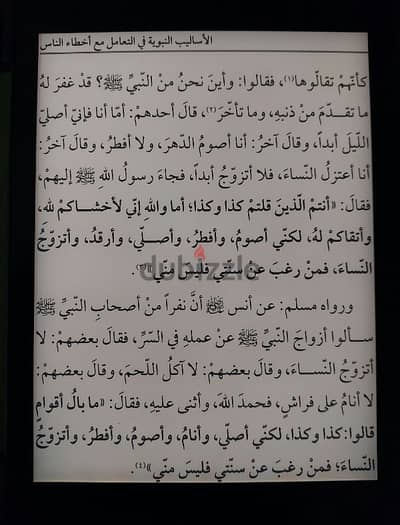 الأساليب النبوية في التعامل مع أخطاء الناس
كأنّهمْ تقالّوها(١)، فقالوا: وأينَ نحنُ منْ النّبيِّ ﷺ؟ قدْ غفرَ لهُ
ما تقدّمَ منْ ذنبهِ، وما تأخّرَ(٢)، قالَ أحدهمْ: أمّا أنا فإنيّ أصليّ
اللّيلَ أبداً، وقالَ آخرُ: أنا أصومُ الدّهرَ، ولا أفطرُ، وقالَ آخرُ:
أنا أعتزلُ النّساءَ، فلا أتزوّجُ أبداً، فجاءَ رسولُ اللهِ ﷺ إليهمْ،
فقالَ: «أنتمْ الّذينَ قلتمْ كذا وكذا؛ أما واللهِ إنّي لأخشاكمْ للهِ،
وأتقاكمْ لهُ، لكنّي أصومُ، وأفطرُ، وأصلّي، وأرقدُ، وأتزوّجُ
النّساءَ، فمنْ رغبَ عنْ سنّتي فليسَ منّي»(٣).
ورواه مسلم: عن أنس ﷺ أنَّ نفراً منْ أصحابِ النّبيِّ ﷺ
سألوا أزواجَ النّبيِّ ﷺ عنْ عملهِ في السّرِّ، فقالَ بعضهمْ: لا
أتزوّجُ النّساءَ، وقالَ بعضهمْ: لا آكلُ اللّحمَ، وقالَ بعضهمْ:
لا أنامُ على فراشٍ، فحمدَ اللهَ، وأثنى عليهِ، فقالَ: «ما بالُ أقوامٍ
قالوا: كذا وكذا، لكنّي أصلّي، وأنامُ، وأصومُ، وأفطرُ، وأتزوّجُ
النّساءَ؛ فمنْ رغبَ عنْ سنّتي فليسَ منّي»(٤).
dubizzle